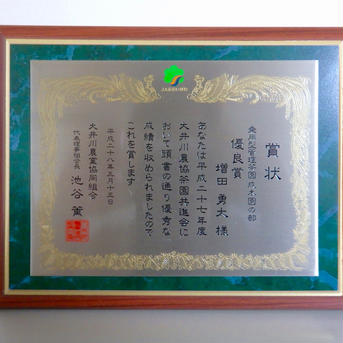 賞状
乗用型管理茶園成木園の部
優良賞
増田 勇大 様
あなたは平成二十七年度
大井川農協茶園共進会に
おいて頭書の通り優秀な
成績を収められましたので
これを賞します
平成二十八年五月十三日
大井川農業協同組合
代表理事組合長 池谷 薫